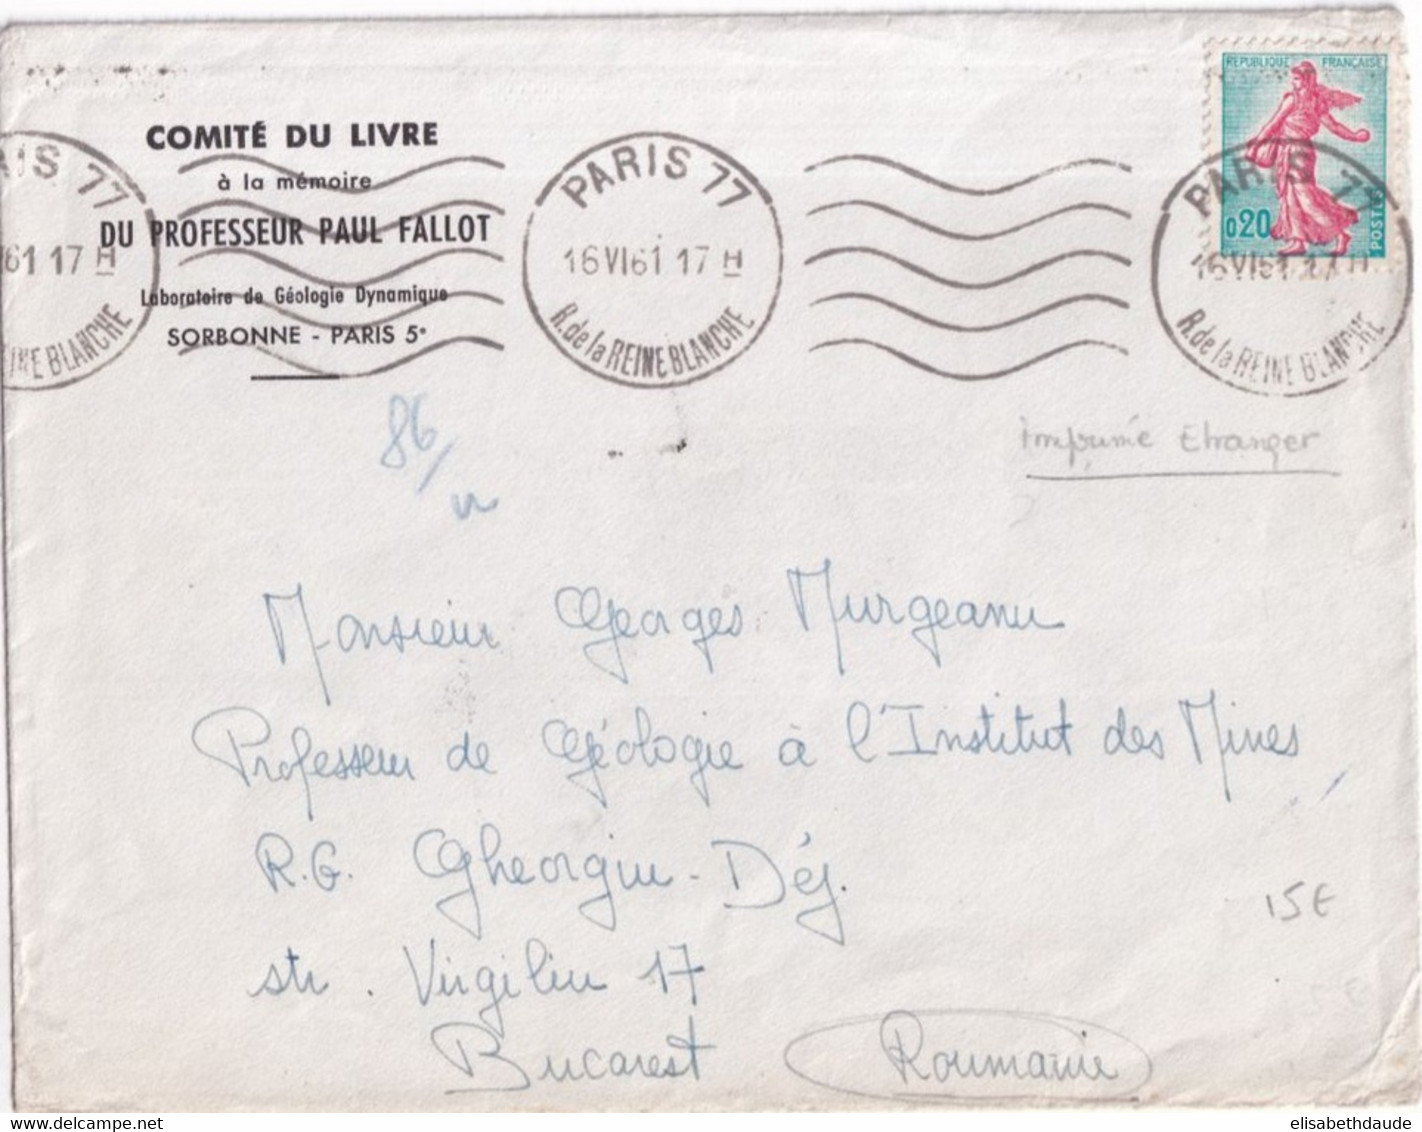 RÉPUBLIQUE FRANÇAISE
0,20
POSTES
COMITÉ DU LIVRE
à la mémoire
DU PROFESSEUR PAUL FALLOT
Laboratoire de Géologie Dynamique
SORBONNE - PARIS 5e
RIS 77
61 17 H
INE BLANCHE
PARIS 77
16 VI 61 17 H
R. de la REINE BLANCHE
PARIS 77
16 VI 61 17 H
R. de la REINE BLANCHE
86/
Imprimé Etranger
Monsieur Georges Murgeanu
Professeur de Géologie à l'Institut des Mines,
R.G. Gheorgiu-Déj.
str. Virgiliu 17
Bucarest Roumanie
15€
elisabethdaude